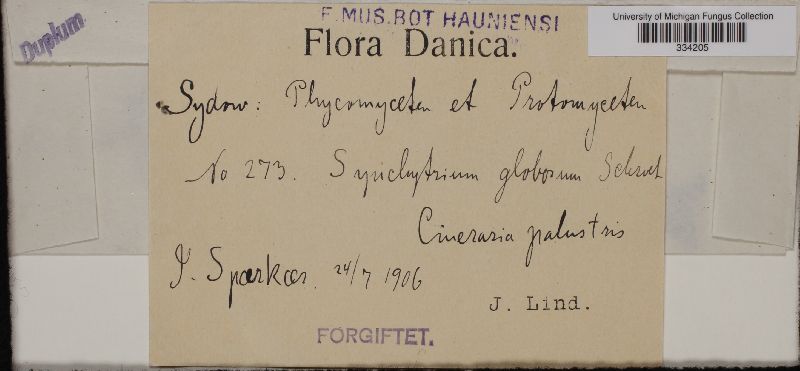 Duplum
E.MUS.BOT HAUNIENSI
University of Michigan Fungus Collection
334205
Flora Danica.
Sydow: Phycomyceten et Protomyceten
No 273. Synchytrium globosum Schroet
Cineraria palustris
Sparkær. 24/7 1906
J. Lind.
FORGIFTET.